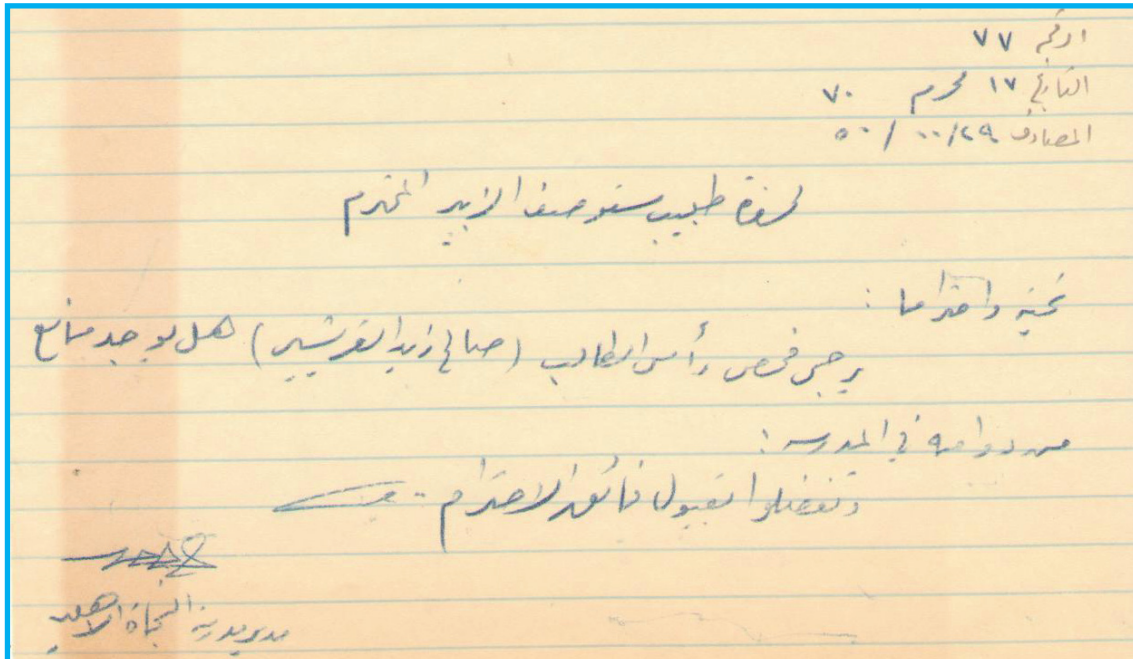 الرقم ٧٧
التاريخ ١٧ محرم ٧٠
المصادف ٢٩/١٠/٥٠
لحضرة طبيب مستوصف الزبير المحترم
تحية واحتراما :
يرجى فحص رأس الطالب (صالح زيد القريشي) هل يوجد مانع
من دوامه في المدرسة :
وتفضلوا بقبول فائق الاحترام
مدير مدرسة النجاة الاهلية